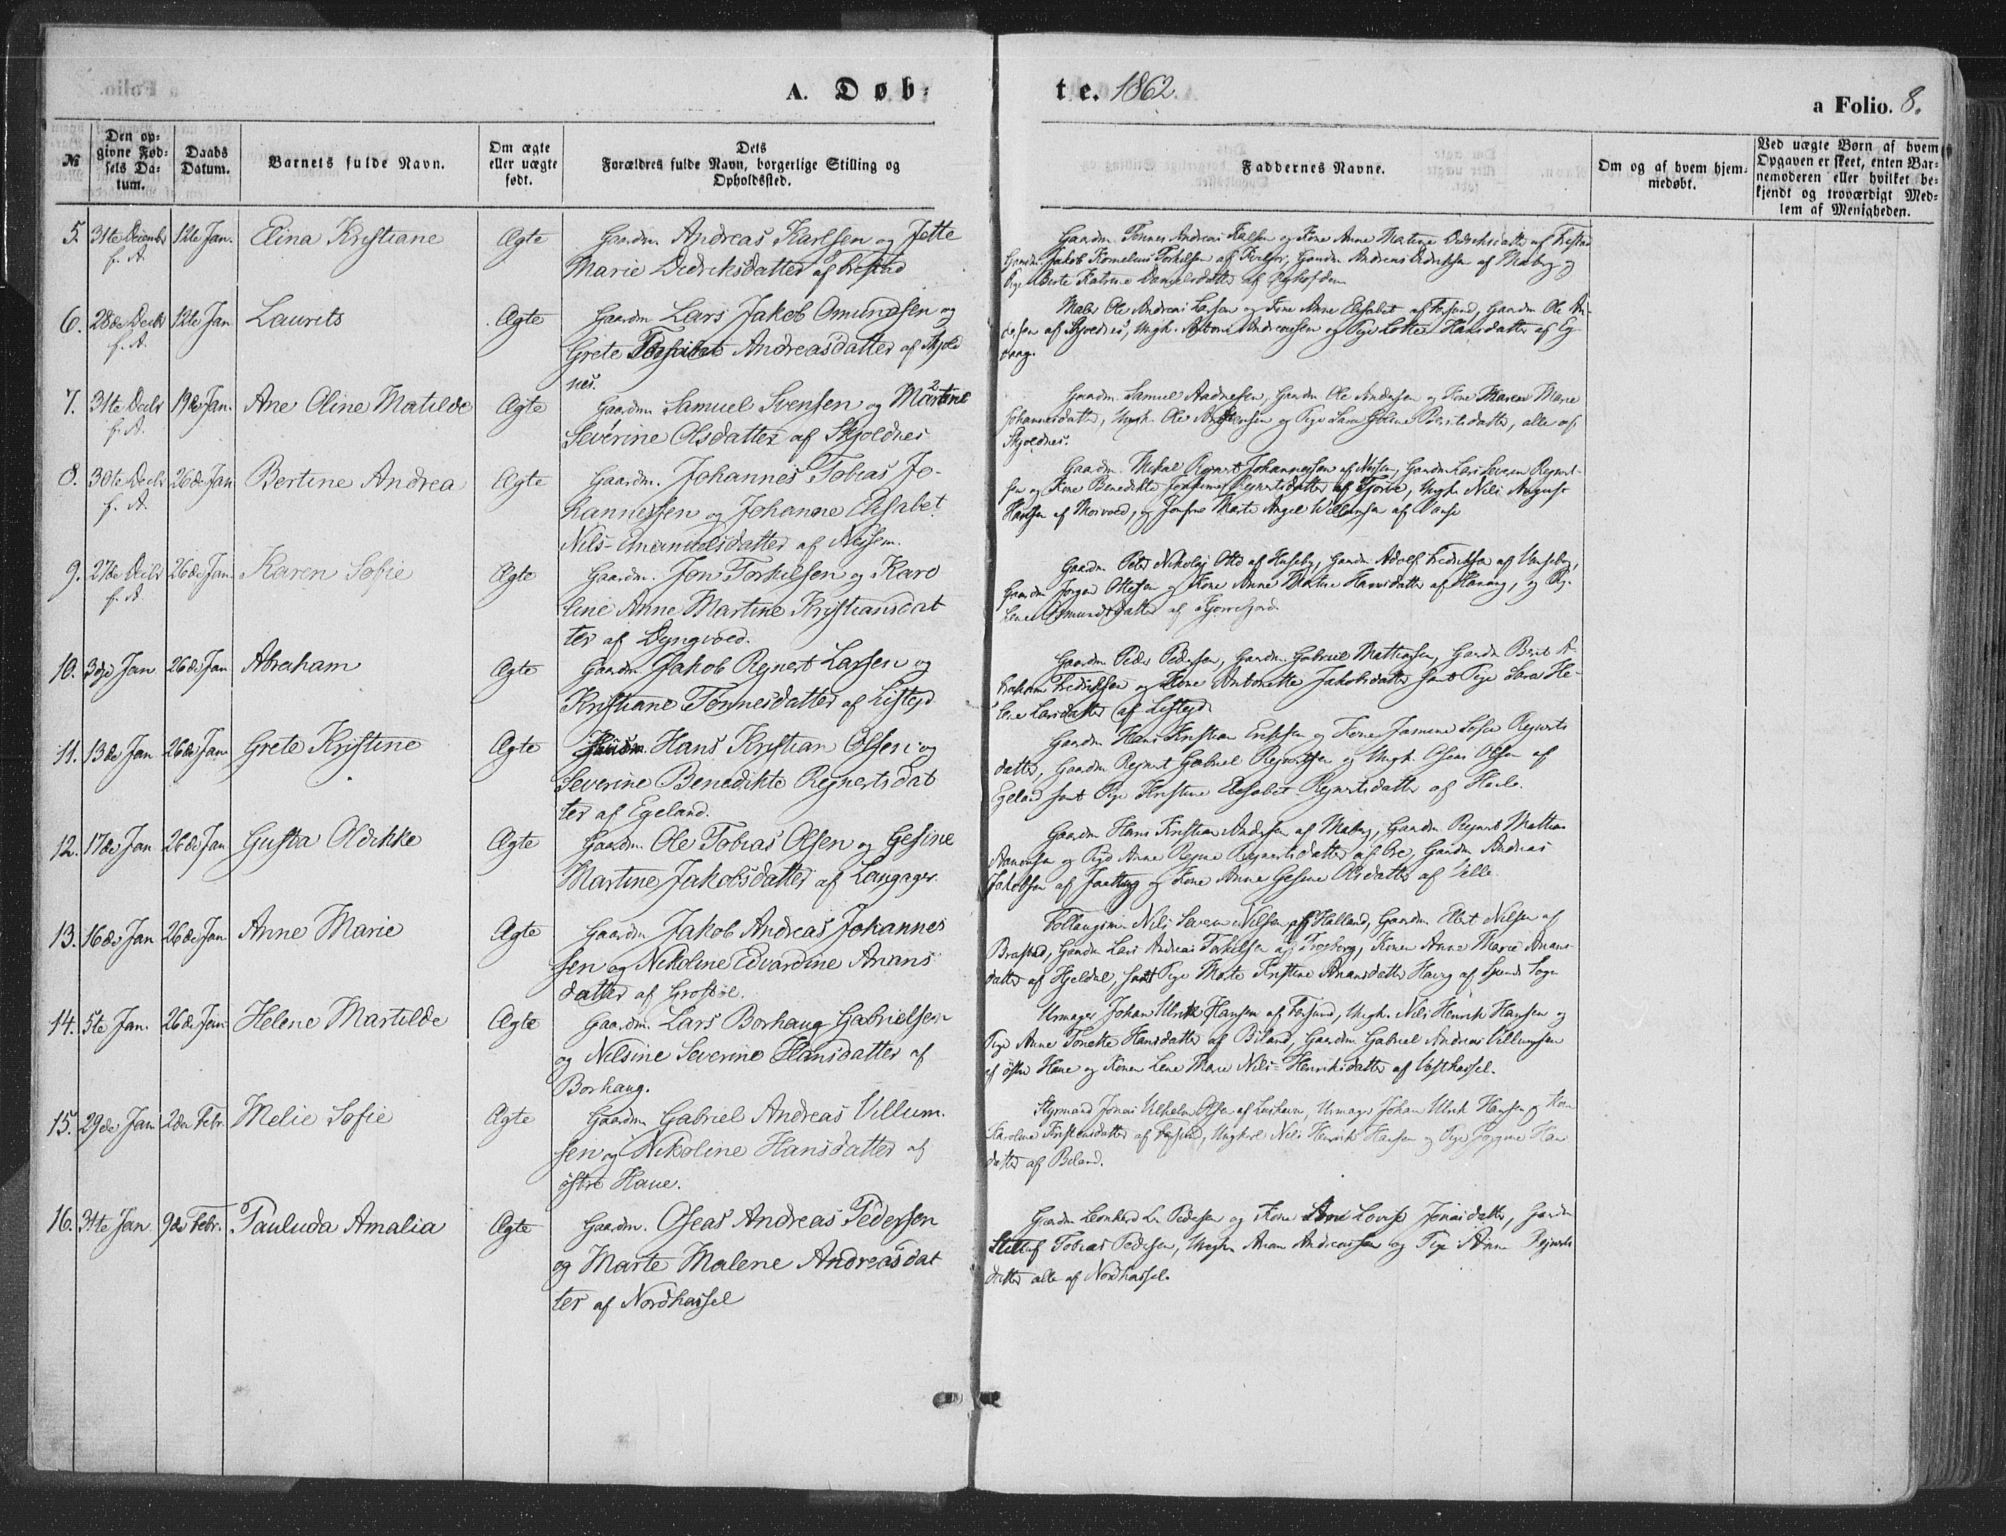 A. Døb-
te. 1862.
a Folio. 8.
№
Den op-
givne Fød-
sels Da-
tum.
Daabs
Datum.
Barnets fulde Navn.
Om ægte
eller uægte
født.
Dets
Forældres fulde Navn, borgerlige Stilling og
Opholdssted.
Faddernes Navne.
Om og af hvem hjem-
medøbt.
Ved uægte Børn af hvem
Opgaven er skeet, enten Bar-
nemoderen eller hvilket be-
kjendt og troværdigt Med-
lem af Menigheden.
5. 31te Decembr 12te Jan. Elina Kristiane Ægte Gaardm. Andreas Karlsen og Jette
f. A. Marie Didriksdatter af
Gaardm. Tønnes Andreas og Kone Anne Martine Didriksdatter af
Gaardm. Jakob Kornelius Torkilsen af Gaardm. Andreas Didriksen af og
Pige Berte Katrine Danielsdatter af
6. 28de Decbr 12te Jan Laurits Ægte Gaardm Lars Jakob Omundsen og
f. A. Grete Andreasdatter af Skjold
nes.
Maler Ole Andreas Larsen og Kone Anne Elisabet af Farsund, Gaardm Ole
af Skjoldnes, Ungk. Andreassen og Pige Lotte Hansdatter af Eg-
vaag.
7. 31te Decbr 19de Jan. Ane Oline Matilde Ægte Gaardm Samuel Svensen og Martine
f. A. Severine Olsdatter af Skjoldnes
Gaardm. Samuel Aadnesen, Gaardm Ole Andersen og Kone Maren Marie
Johannesdatter, Ungk. Ole og Pige Lava alle af
Skjoldnes.
8. 30te Decbr 26de Jan Bertine Andrea Ægte Gaardm. Johannes Tobias Jo-
f. A. hannessen og Johanne Elisabet
Nils-Emanuelsdatter af Nesem.
Gaardm. Mikal Reynert Johannessen af Gaardm Lars Severin Reynert-
sen og Kone Benedikte Reynertsdatter af Tjørve, Ungk. Nils August
Hansen af og Jomfru Marte Angel Willumsen af Vanse
9. 27de Decbr 26de Jan. Karen Sofie Ægte Gaardm. Jon Torkilsen og Karo
f. A. line Anne Martine Kristiansdat
ter af Dyngvoed.
Gaardm Peter Nikolaj Otto af Huseby, Gaardm Adolf Fredriksen af
Gaardm Jørgen Ottesen og Kone Anne Martine Hansdatter af og
Lene Omundsdatter af
10. 3die Jan 26de Jan Abraham Ægte Gaardm Jakob Reynert Larsen og
Kristiane Tønnesdatter af Listeid
Gaardm Peder Pedersen, Gaardm. Gabriel Mattiassen, Gaardm Berent A-
braham Fredriksen og Kone Antonette Jakobsdatter samt Pige Sara He-
lene Larsdatter af Listeid
11. 13de Jan 26de Jan Grete Kristine Ægte Hans Kristian Olsen og
Severine Benedikte Reynertsdat
ter af Egeland.
Gaardm Hans Kristian Eriksen og Kone Jasmine Sofie Reynerts
datter, Gaardm Reynert Gabriel Reynertsen og Ungk. Oseas Olsen af
Egeland samt Pige Kristine Elisabet Reynertsdatter af
12. 17de Jan 26de Jan Gusta Oldikke Ægte Gaardm. Ole Tobias Olsen og Gesine
Martine Jakobsdatter af Langager.
Gaardm Hans Kristian Andersen af Gaardm. Reynert Mattias
Aanonsen og Pige Anne Reynertsdatter af Ore, Gaardm Andreas
Jakobsen af og Kone Anne Gesine Olsdatter af Velle.
13. 16de Jan 26de Jan Anne Marie Ægte Gaardm Jakob Andreas Johannes
sen og Nikoline Edvardine Anans
datter af Grostøl.
Nils Severin Nilsen af Halland, Gaardm. Elbert Nilsen af
Brastad, Gaardm Lars Andreas Torkilsen af Kone Anne Marie Anans
datter af Hjeldal, samt Pige Marte Kristine Anansdatter af Sogn
14. 5te Jan. 26de Jan. Helene Martilde Ægte Gaardm. Lars Borhaug Gabrielsen
og Nilsine Severine Hansdatter af
Borhaug.
Urmager Johan Ulrik Hansen af Farsund, Ungk. Nils Henrik Hansen og
Pige Anne Tonette Hansdatter af Biland, Gaardm Gabriel Andreas Villumsen
af østre Haue og Konen Lene Marie Nils-Henriksdatter af Vesthassel.
15. 29de Jan 2den Febr. Melie Sofie Ægte Gaardm Gabriel Andreas Villum-
sen og Nikoline Hansdatter af
østre Haue.
Styrmand Jonas Vilhelm Olsen af Urmager Johan Ulrik Hansen og Kone
Karoline Kristensdatter af Farsund, Ungkrl Nils Henrik Hansen og Pige
datter af Biland.
16. 31te Jan 9de Febr. Pauluda Amalia Ægte Gaardm. Oseas Andreas Pedersen
og Marte Malene Andreasdat
ter af Nordhassel
Gaardm Leonhard Pedersen og Kone Lovise Jonasdatter, Gaardm
Tobias Pedersen, Ungkr. Anan Andreassen og Pige Reynerts
datter alle af Nordhassel.